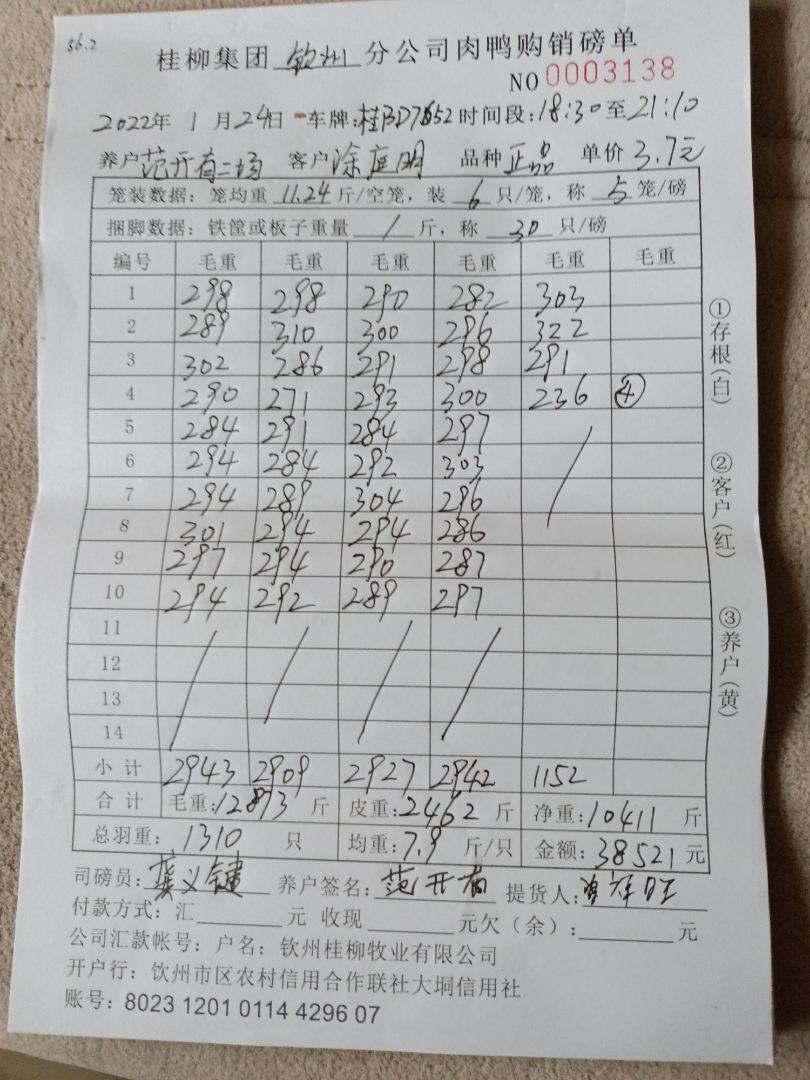 56.2
桂柳集团 钦州 分公司肉鸭购销磅单
NO 0003138
2022年 1 月 24日 车牌:桂BD7652 时间段:18:30至21:10
养户 范开有二场 客户 涂庭明 品种 正品 单价 3.7元
笼装数据: 笼均重 11.24 斤/空笼, 装 6 只/笼, 称 5 笼/磅
捆脚数据: 铁筐或板子重量 / 斤, 称 30 只/磅
编号 毛重 毛重 毛重 毛重 毛重 毛重
1 298 298 290 282 303
2 289 310 300 296 322
3 302 286 291 298 291
4 290 271 293 300 236 ④
5 284 291 284 297
6 294 284 292 303
7 294 289 304 296
8 301 294 294 286
9 297 294 290 287
10 294 292 289 297
11
12
13
14
小计 2943 2909 2927 2942 1152
合计 毛重:12873 斤 皮重:2462 斤 净重:10411 斤
总羽重: 1310 只 均重:7.9 斤/只 金额:38521元
司磅员: 龚义键 养户签名: 范开有 提货人:
付款方式: 汇 元 收现 元欠(余): 元
公司汇款帐号: 户名: 钦州桂柳牧业有限公司
开户行: 钦州市区农村信用合作联社大垌信用社
账号: 8023 1201 0114 4296 07
①存根(白)
②客户(红)
③养户(黄)